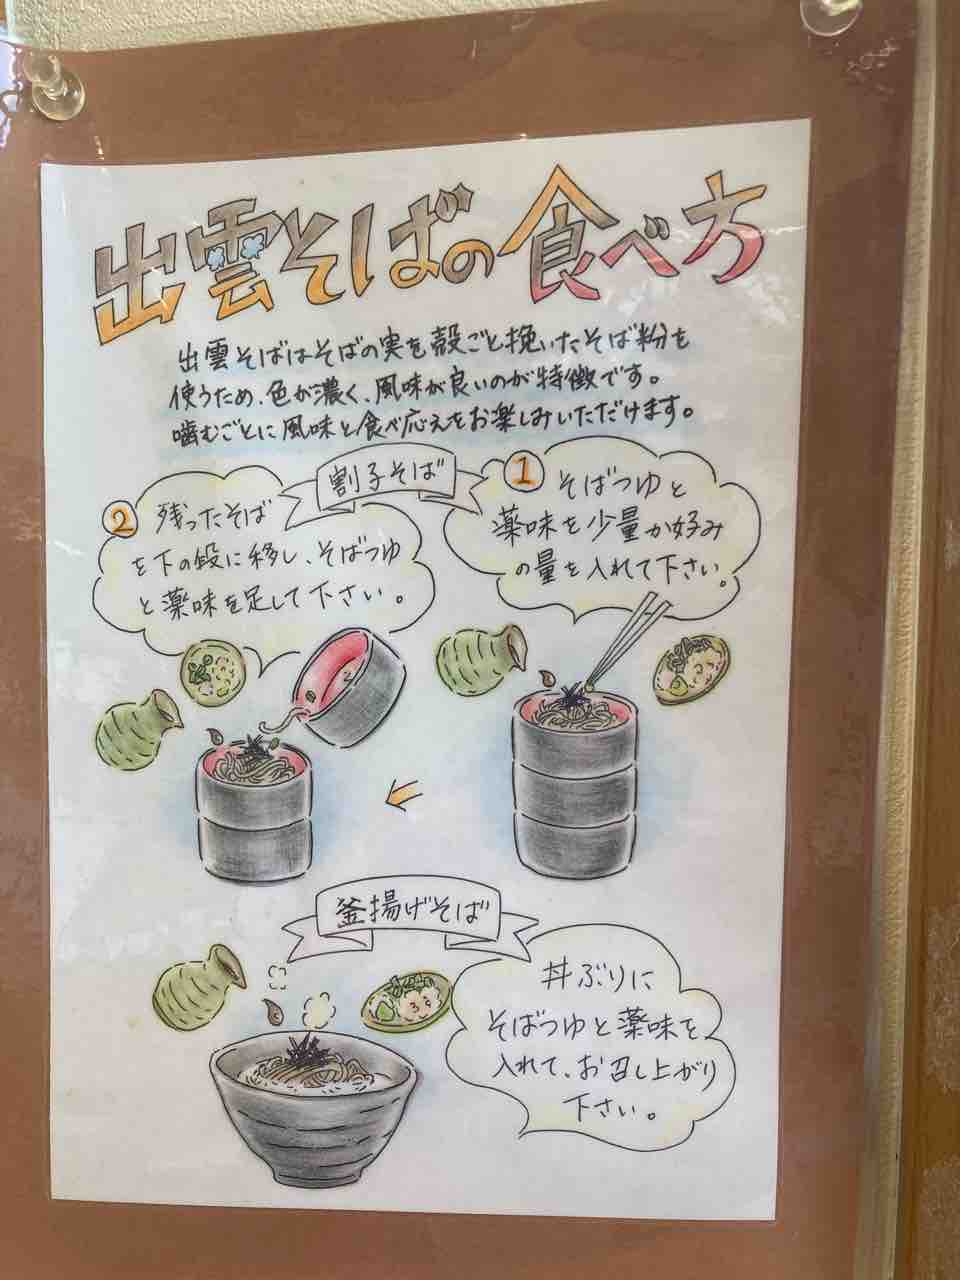 出雲そばの食べ方
出雲そばはそばの実を殻ごと挽いたそば粉を
使うため、色が濃く、風味が良いのが特徴です。
噛むごとに風味と食べ応えをお楽しみいただけます。
割子そば
1 そばつゆと
薬味を少量か好み
の量を入れて下さい。
2 残ったそば
を下の段に移し、そばつゆ
と薬味を足して下さい。
2
釜揚げそば
丼ぶりに
そばつゆと薬味を
入れて、お召し上がり
下さい。